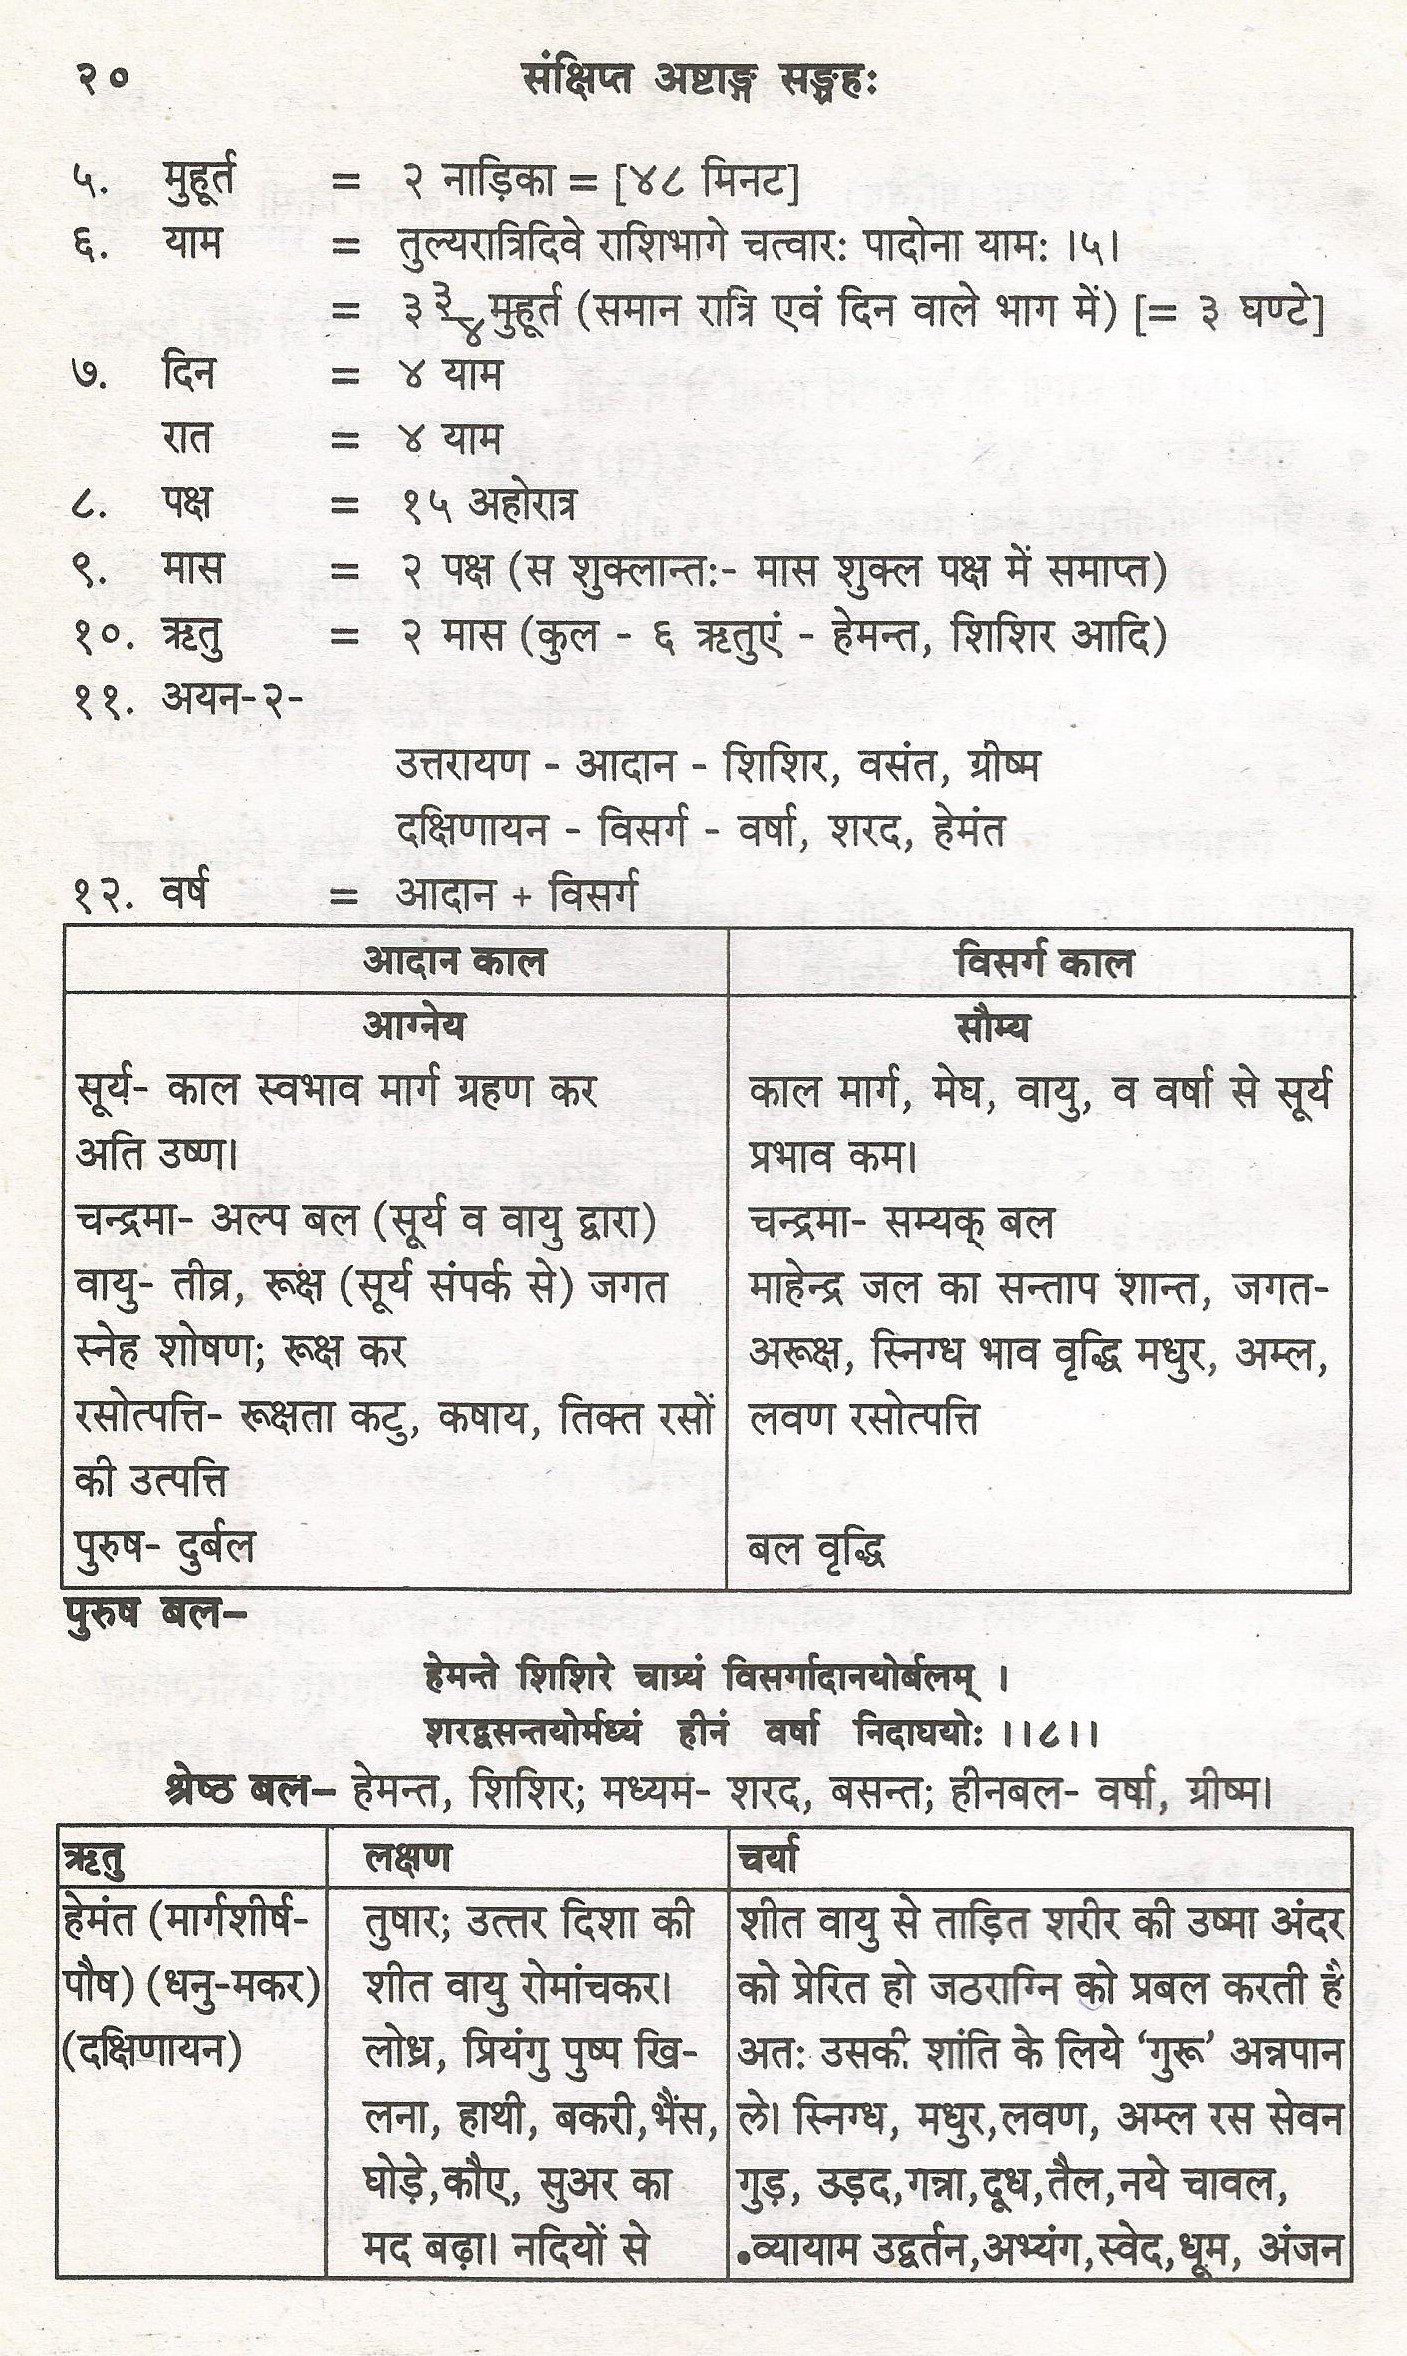 २० संक्षिप्त अष्टाङ्ग सङ्ग्रहः
५. मुहूर्त = २ नाड़िका = [४८ मिनट]
६. याम = तुल्यरात्रिदिवे राशिभागे चत्वारः पादोना यामः ।५।
= ३ ३/४ मुहूर्त (समान रात्रि एवं दिन वाले भाग में) [= ३ घण्टे]
७. दिन = ४ याम
रात = ४ याम
८. पक्ष = १५ अहोरात्र
९. मास = २ पक्ष (स शुक्लान्तः- मास शुक्ल पक्ष में समाप्त)
१०. ऋतु = २ मास (कुल - ६ ऋतुएं - हेमन्त, शिशिर आदि)
११. अयन-२-
उत्तरायण - आदान - शिशिर, वसंत, ग्रीष्म
दक्षिणायन - विसर्ग - वर्षा, शरद, हेमंत
१२. वर्ष = आदान + विसर्ग
आदान काल
आग्नेय
सूर्य- काल स्वभाव मार्ग ग्रहण कर
अति उष्ण।
चन्द्रमा- अल्प बल (सूर्य व वायु द्वारा)
वायु- तीव्र, रूक्ष (सूर्य संपर्क से) जगत
स्नेह शोषण; रूक्ष कर
रसोत्पत्ति- रूक्षता कटु, कषाय, तिक्त रसों
की उत्पत्ति
पुरुष- दुर्बल
विसर्ग काल
सौम्य
काल मार्ग, मेघ, वायु, व वर्षा से सूर्य
प्रभाव कम।
चन्द्रमा- सम्यक् बल
माहेन्द्र जल का सन्ताप शान्त, जगत-
अरूक्ष, स्निग्ध भाव वृद्धि मधुर, अम्ल,
लवण रसोत्पत्ति
बल वृद्धि
पुरुष बल–
हेमन्ते शिशिरे चाग्र्यं विसर्गादानयोर्बलम् ।
शरद्वसन्तयोर्मध्यं हीनं वर्षा निदाघयोः ।।८।।
श्रेष्ठ बल– हेमन्त, शिशिर; मध्यम- शरद, बसन्त; हीनबल- वर्षा, ग्रीष्म।
ऋतु
हेमंत (मार्गशीर्ष-
पौष) (धनु-मकर)
(दक्षिणायन)
लक्षण
तुषार; उत्तर दिशा की
शीत वायु रोमांचकर।
लोध्र, प्रियंगु पुष्प खि-
लना, हाथी, बकरी,भैंस,
घोड़े,कौए, सुअर का
मद बढ़ा। नदियों से
चर्या
शीत वायु से ताड़ित शरीर की उष्मा अंदर
को प्रेरित हो जठराग्नि को प्रबल करती है
अतः उसकी शांति के लिये ‘गुरू’ अन्नपान
ले। स्निग्ध, मधुर,लवण, अम्ल रस सेवन
गुड़, उड़द,गन्ना,दूध,तैल,नये चावल,
•व्यायाम उद्वर्तन,अभ्यंग,स्वेद,धूम, अंजन